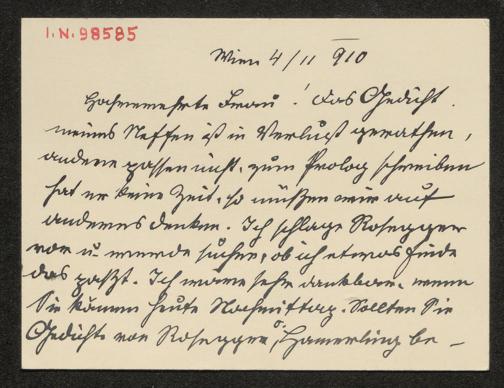 I.N. 98585
Wien 4/11 910
Hochverehrte Frau! das Gedicht
meines Neffen ist in Verlust gerathen,
andere passen nicht, zum Prolog schreiben
hat er keine Zeit, so müßen wir auf
anderes denken. Ich schlage Rosegger
vor u werde suchen, ob ich etwas finde
das paßt. Ich wäre sehr dankbar, wenn
Sie kämen heute Nachmittag. Sollten Sie
Gedichte von Rosegger o. Hamerling be-